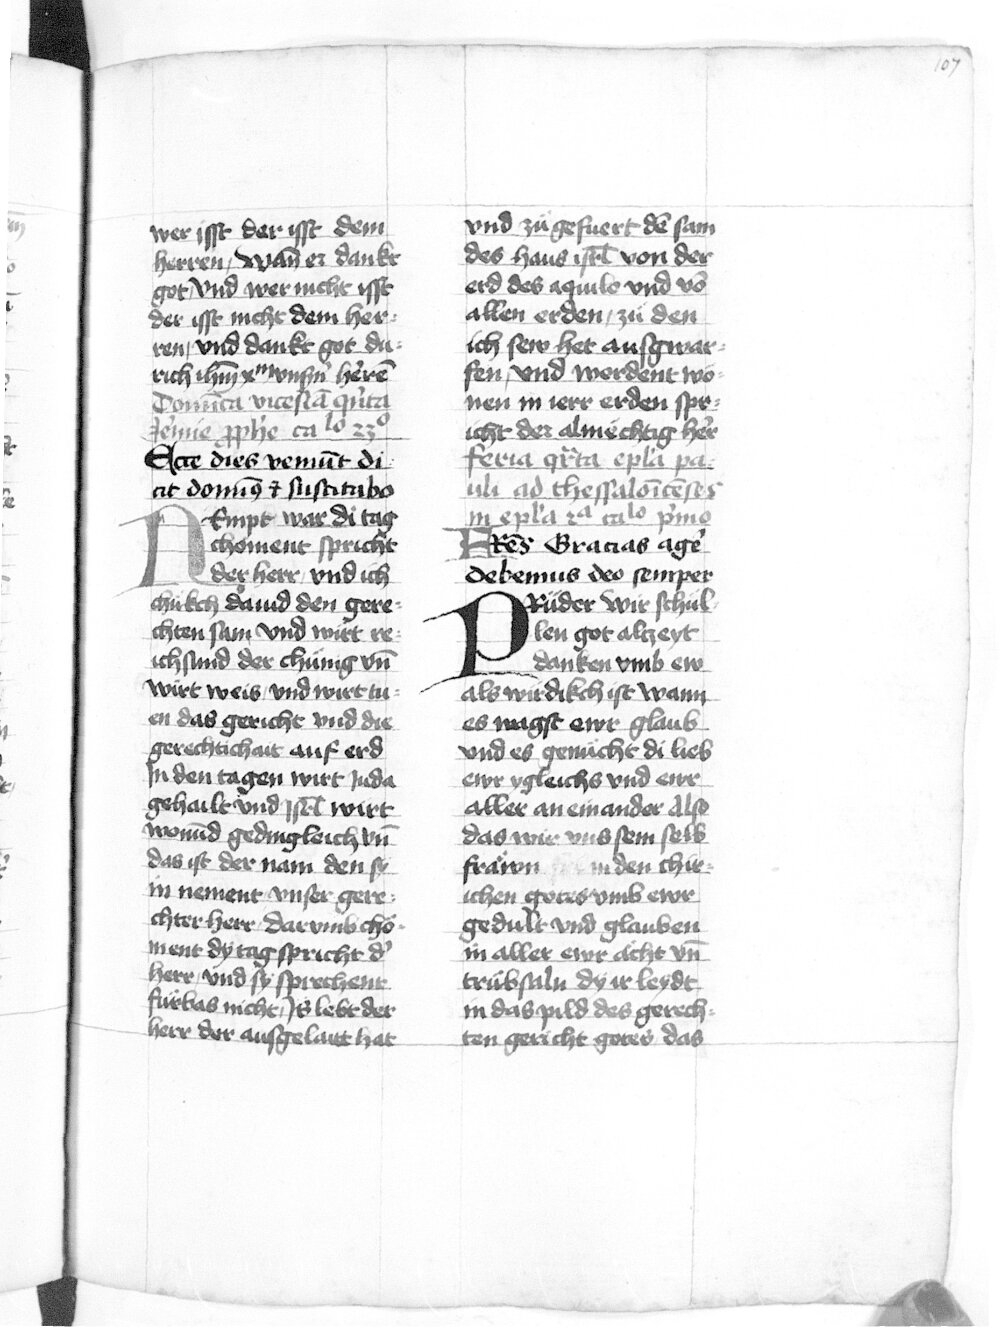 107
wer isst der isst dem
herren / Wan̄ er dankt
got / Vnd wer nicht isst
der isst nicht dem her-
ren / vnd dankt got du-
rich ihm̄ xp̄m vnsm̄ herē
Domīca vicesīa qͥnta
Jeremie ꝓphe caˡᵒ 23º
Ecce dies veniūt di-
cit domin⁹ ⁊ suscitabo
NEmpt war di tag
choment spricht
der herr / vnd ich
chükch dauid den gere-
chten sam Vnd wirt re-
ichsund der chünig vn̄
wirt weis / vnd wirt tu-
en das gericht vnd die
gerechtichait auf erd
In den tagen wirt Juda
gehailt vnd Isrl̄ wirt
wonūd gedingleich vn̄
das ist der nam den sy
in nement vnser gere-
chter herr / Darvmb cho-
ment dy tag spricht d'
herr / vnd sy sprechent
fürbas nicht / Es lebt der
herr der ausgelaitt hat
vnd zů gefuert dē sam
des haus isrl̄ von der
erd des aquilo vnd vō
allen erden / zu den
ich sew het ausgwar-
fen / Vnd werdent wo-
nen in ierr erden spr-
icht der almechtig her̄
feria qrͣta epl̄a pa-
uli ad thessalonicēses
in epl̄a 2ª caˡᵒ pͥmo
FRēs Gracias agē
debemus deo semper
PRüder Wir schül-
len got alzeyt
danken vmb ew
als wirdikch ist Wann
es wagst ewr glaub
vnd es genücht di lieb
ewr ygleichs vnd ewr
aller an einander Also
das wir vns sein selb
fräwn in den chir-
ichen gotes vmb ewr
gedult vnd glauben
in aller ewr ächt vn̄
trübsaln dy ir leydt
in das pild des gerech-
ten gericht gotes das